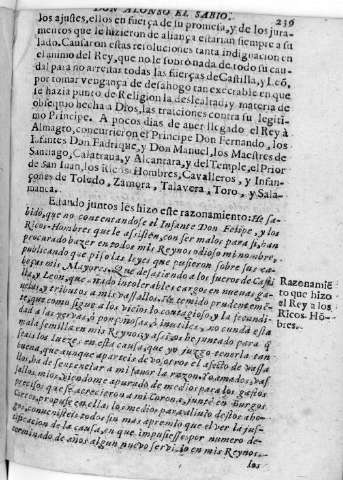 DON ALONSO EL SABIO. 239
los ajustes, ellos en fuerça de su promesa, y de los jura-
mentos que le hizieron de aliança estarian siempre a su
lado. Causaron estas resoluciones tanta indignacion en
el animo del Rey, que no le sobró nada de todo su cau-
dal para no arrestar todas las fuerças de Castilla, y Leõ,
por tomar vengança de desahogo tan execrable en que
se hazia punto de Religion la deslealtad, y materia de
obsequio hecha a Dios, las traiciones contra su legiti-
mo Principe. A pocos dias de auer llegado el Rey à
Almagro, concurrieron el Principe Don Fernando, los
Infantes Don Fadrique, y Don Manuel, los Maestres de
Santiago, Calatraua, y Alcantara, y del Temple, el Prior
de San Iuan, los Ricos Hombres, Cavalleros, y Infan-
çones de Toledo, Zamora, Talavera, Toro, y Sala-
manca.
Estando juntos les hizo este razonamiento: He sa-
bido, que no contentandose el Infante Don Felipe, y los
Ricos-Hombres que le assisten, con ser malos para si, han
procurado hazer en todos mis Reynos odioso mi nombre,
publicando que piso las leyes que pusieron sobre sus ca-
beças mis Mayores. Que desaziendo a los fueros de Casti
lla, y Leon, que añado intolerables cargos en nueuas ga-
velas, y tributos a mis vassallos. He temido prudentemẽ-
te, que como sigue a los vicios lo contagioso, y la fecundi-
dad a las yervas, ò ponçoñosas, ò inutiles, no cunda esta
mala semilla en mis Reynos; y assi os he juntado para q̃
seais los juezes en esta causa, que yo juzgo tenerla tan
buena, que aunque aparteis de vosotros el afecto de vassa
llos, ha de sentenciar a mi fauor la razon. Yo amados vas
sallos mios, viendome apurado de medios para los gastos
precisos que se acrecieron a mi Corona, juntè en Burgos
Cortes, propuse en ellas los medios para aliuio destos aho-
gos, convenisteis todos sin mas apremio que el ver la jus-
tificacion de la causa, en que impusiesse por numero de-
terminado de años algun nuevo servicio en mis Reynos.
los
Razonamiẽ
to que hizo
el Rey a los
Ricos. Hõ-
bres.